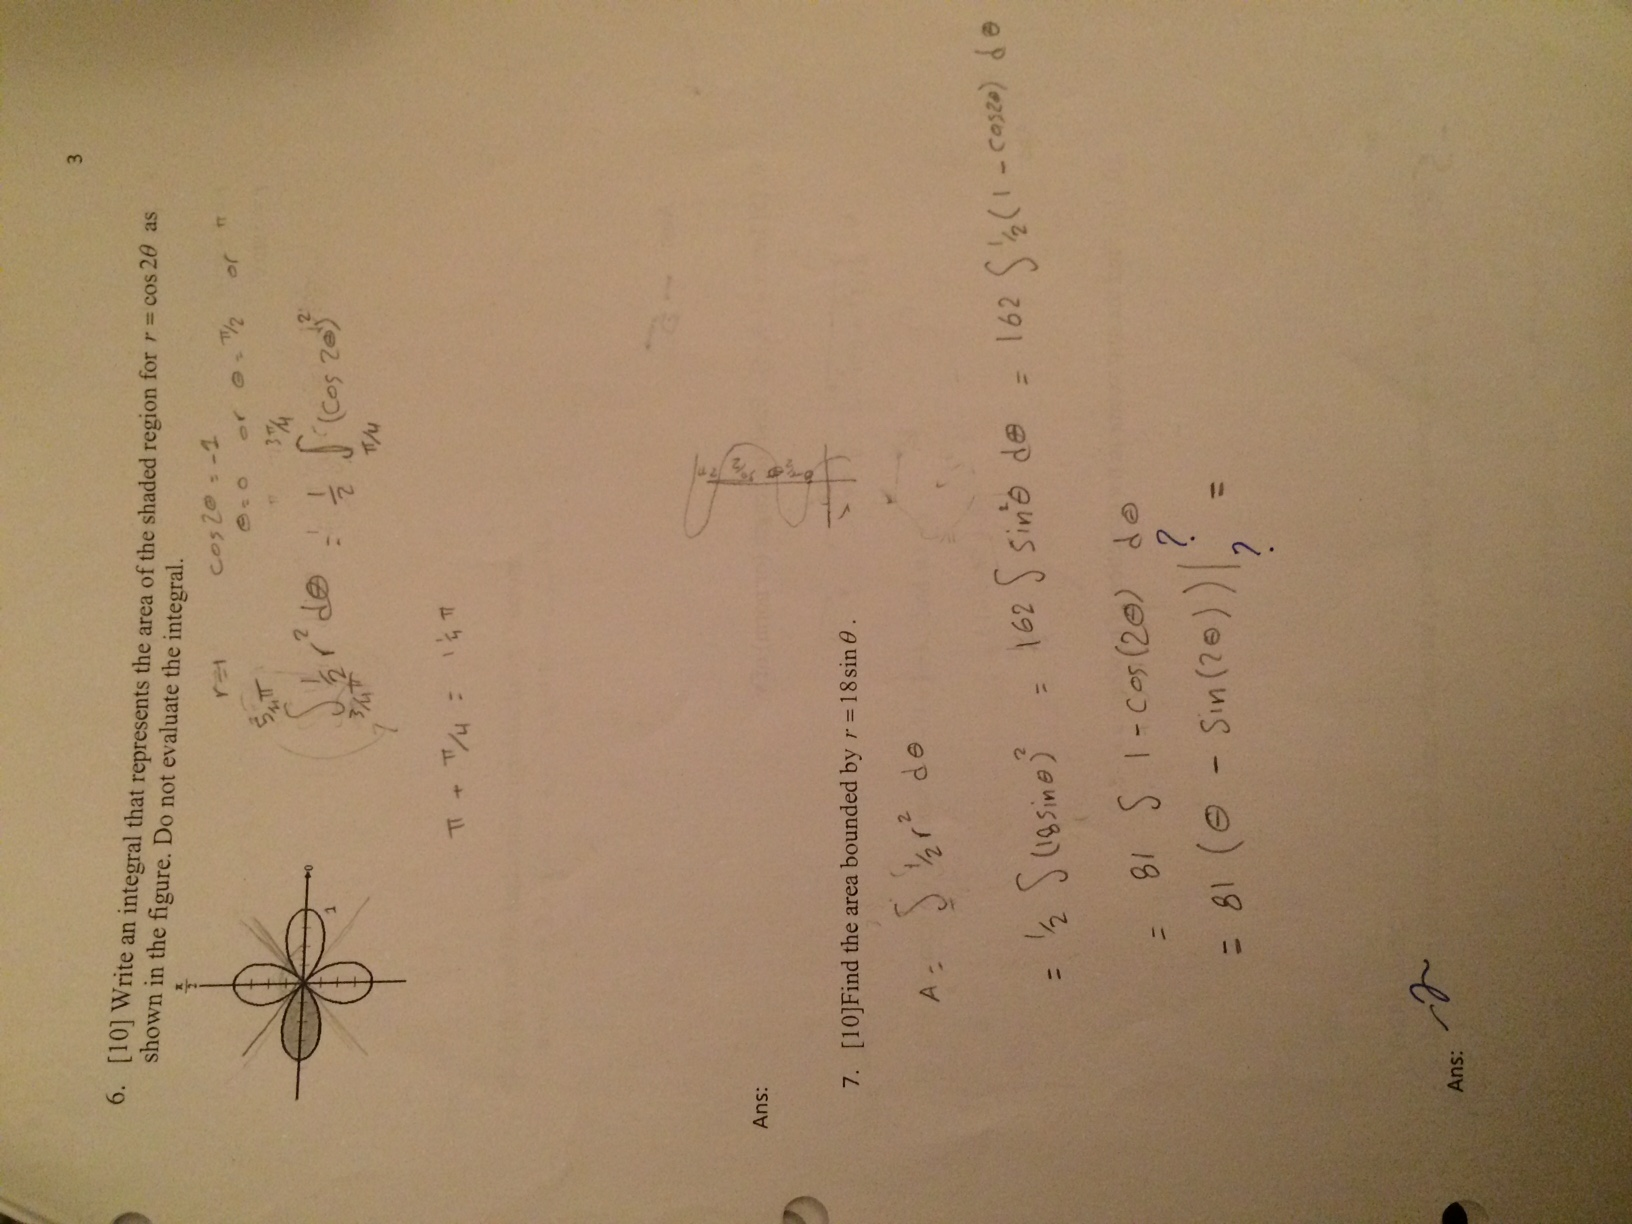 3
6. [10] Write an integral that represents the area of the shaded region for r = cos 2θ as
shown in the figure. Do not evaluate the integral.
r=1 cos 2θ = -1
θ=0 or θ = π/2 or π
π/2
0
1
∫ 1/2 r² dθ = 1/2 ∫ (cos 2θ)²
5/4 π 3/4 π 3π/4 π/4
π + π/4 = 1 1/4 π
Ans:
7. [10]Find the area bounded by r = 18 sin θ.
A = ∫ 1/2 r² dθ
= 1/2 ∫ (18 sin θ)² = 162 ∫ sin²θ dθ = 162 ∫ 1/2 (1 - cos 2θ) dθ
= 81 ∫ 1 - cos(2θ) dθ
= 81 (θ - sin(2θ)) |?? =
Ans: